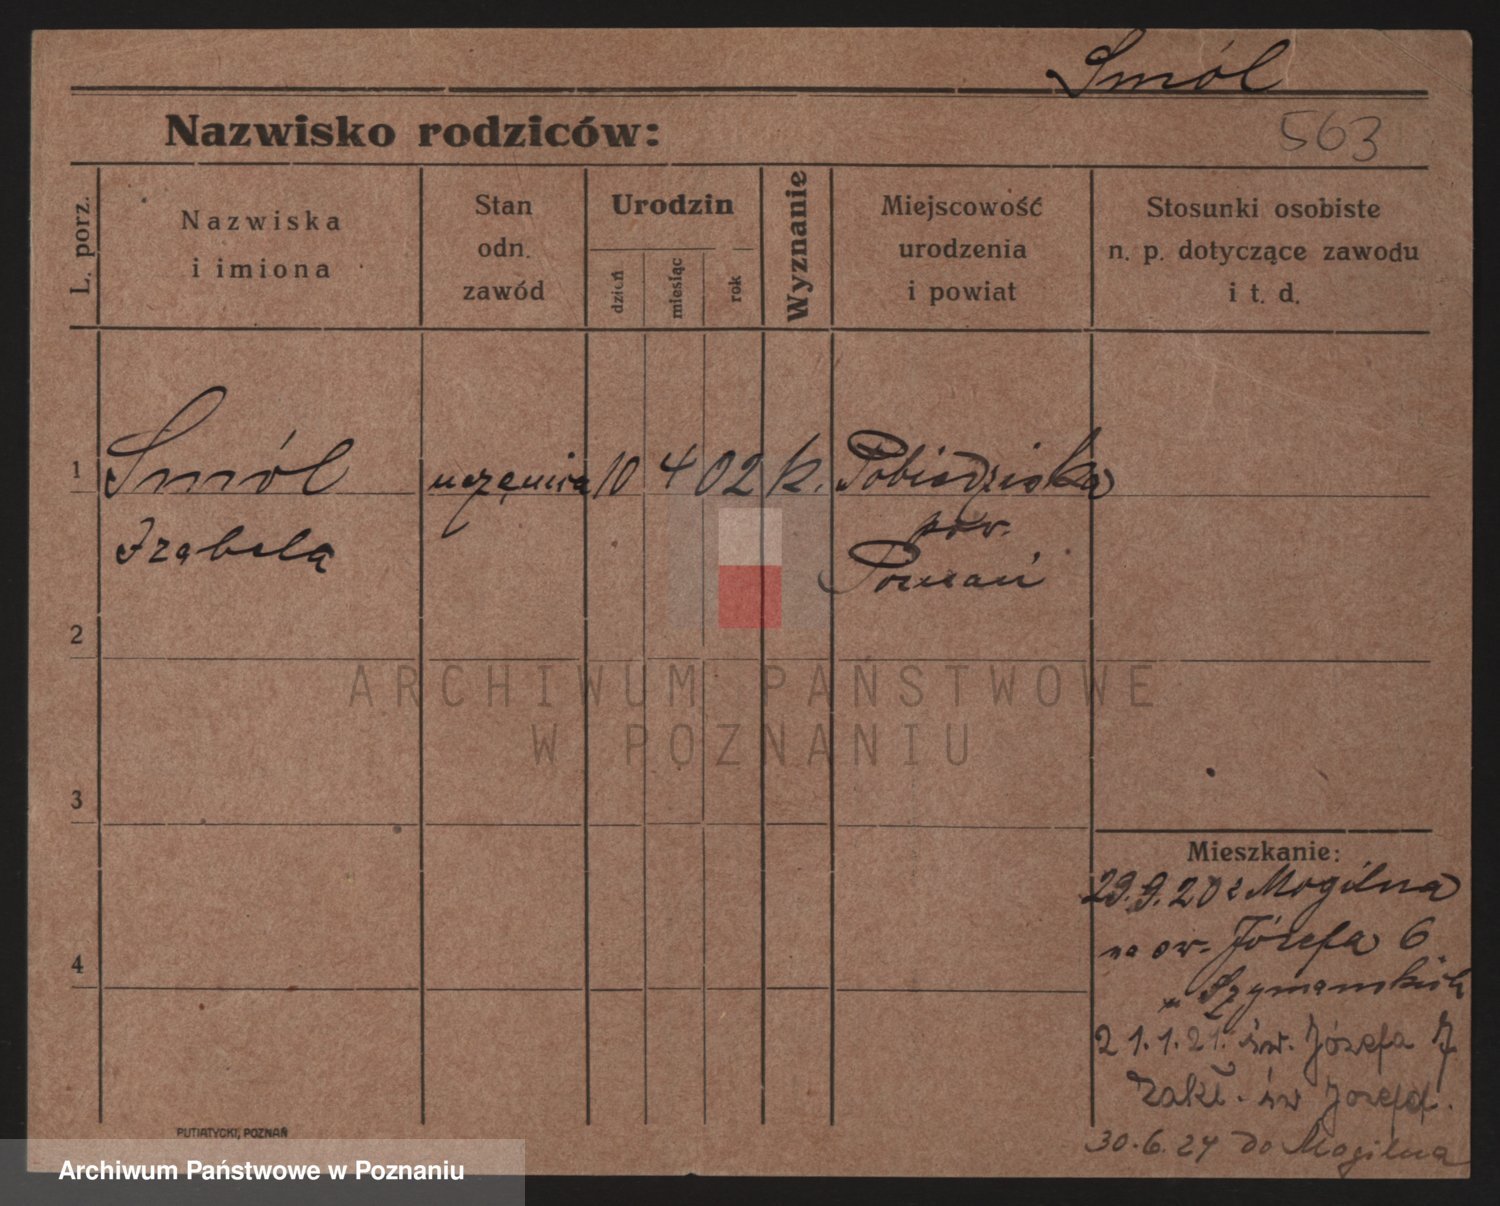 Smól
Nazwisko rodziców:
563
L. porz.
Nazwiska
i imiona
Stan
odn.
zawód
Urodzin
dzień
miesiąc
rok
Wyznanie
Miejscowość
urodzenia
i powiat
Stosunki osobiste
n. p. dotyczące zawodu
i t. d.
1 Smól uczenica 10 4 02 k. Pobiedziska
Izabela
pow.
Poznań
2
ARCHIWUM PAŃSTWOWE
W POZNANIU
3
Mieszkanie:
29.9.20 z Mogilna
na św. Józefa 6
u Szymańskich
4
21.1.21. św. Józefa 7
Zakł. św Józefa.
30.6.24 do Mogilna
PUTIATYCKI, POZNAŃ
Archiwum Państwowe w Poznaniu